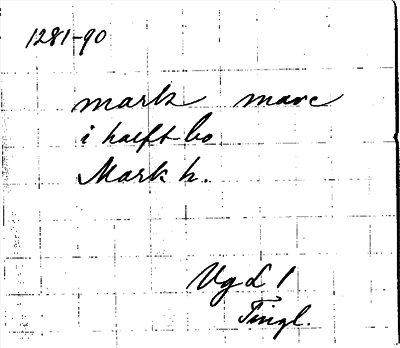 1281-90
mark marc
i haeft bo
Mark h.
Vg L 1
Tingl.